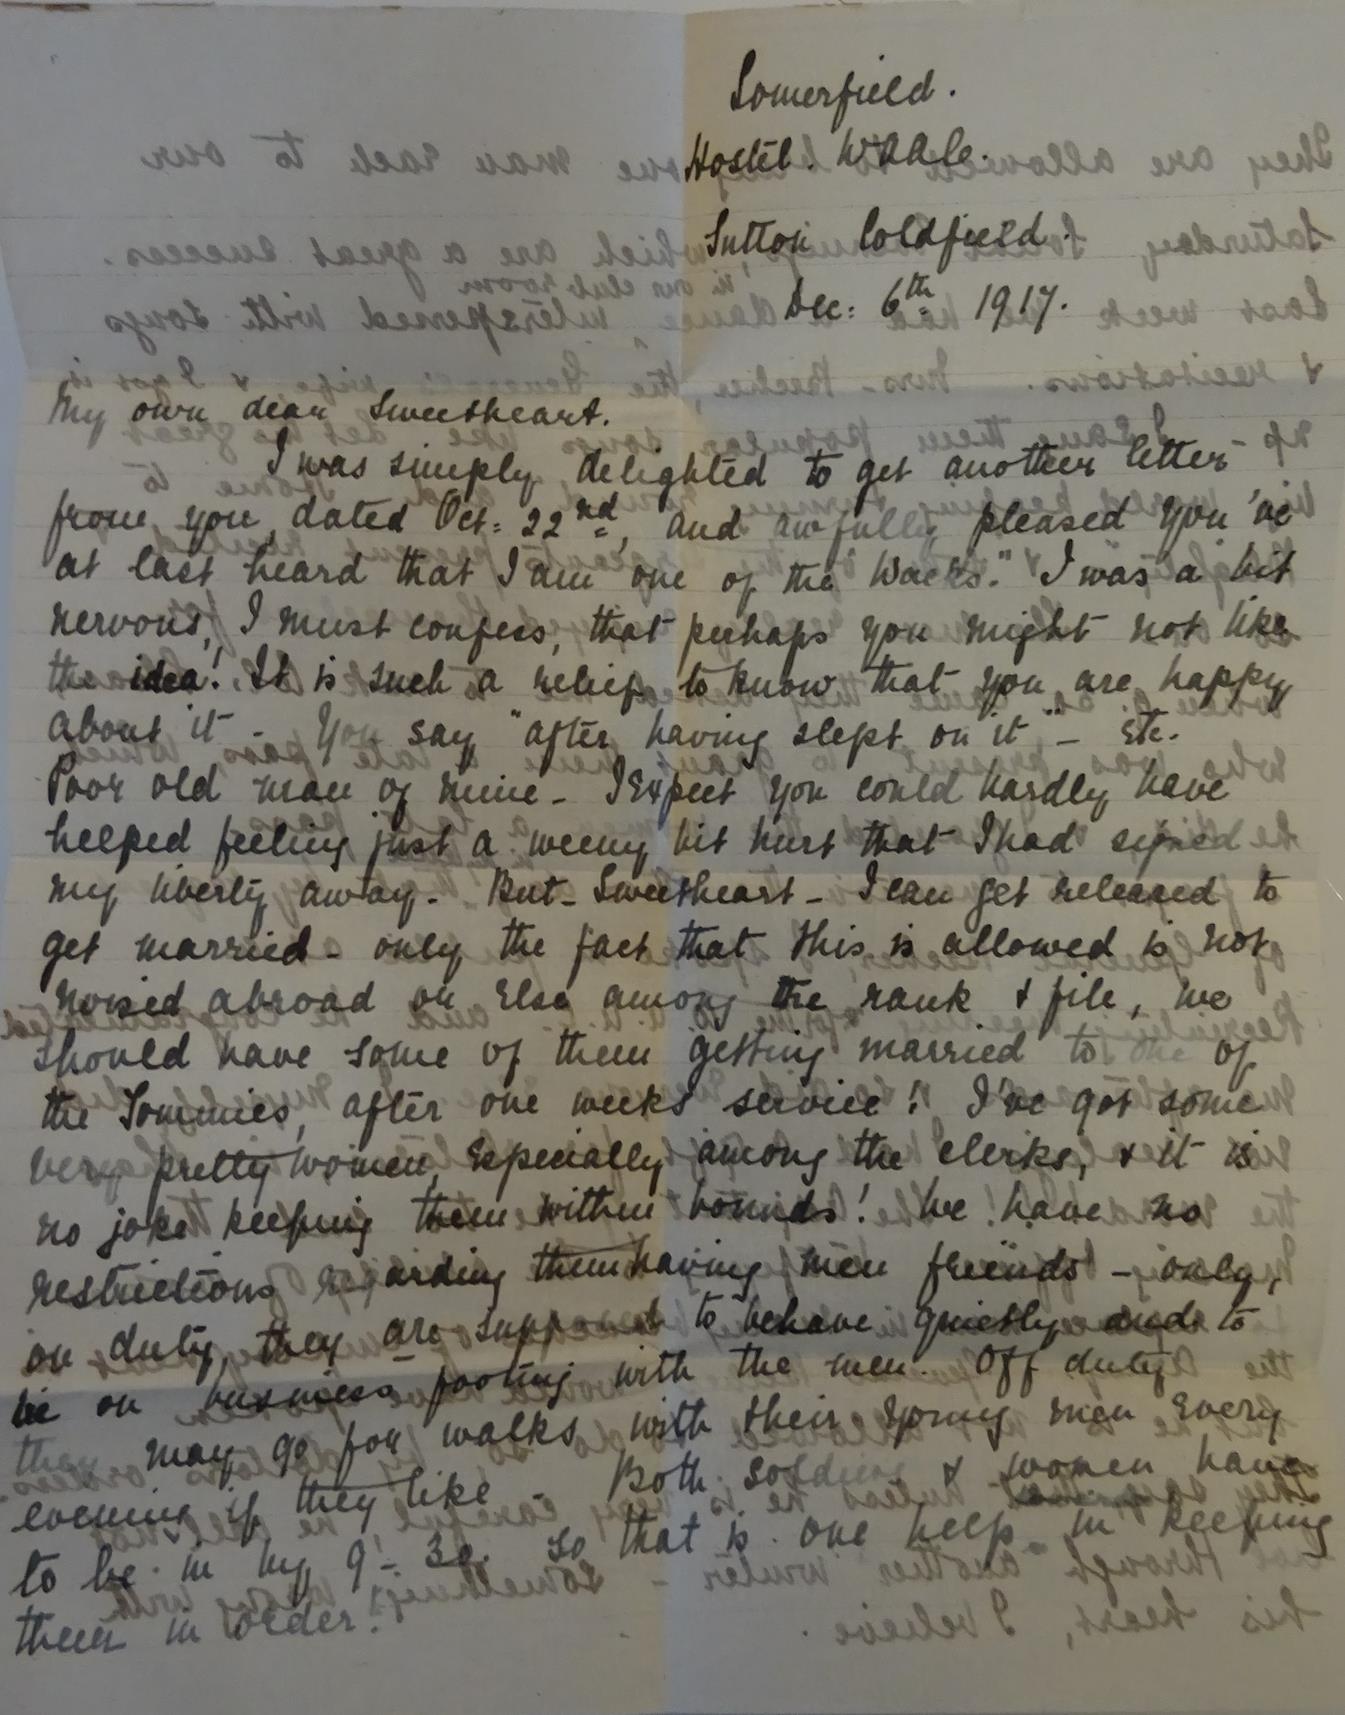 Somerfield.
Hostel. WAAC.
Sutton Coldfield.
Dec: 6th 1917.
My own dear Sweetheart.
I was simply delighted to get another letter
from you, dated Oct: 22nd, and awfully pleased you've
at last heard that I am one of the Waacs." I was a bit
nervous, I must confess, that perhaps you might not like
the idea! It is such a relief to know that you are happy
about it - You say "after having slept on it" - Etc.
Poor old man of mine - I Expect you could hardly have
helped feeling just a weeny bit hurt that I had signed
my liberty away - But - Sweetheart - I can get released to
get married - only the fact that this is allowed is not
noised abroad or Else among the rank & file, we
should have some of them getting married to one of
the Tommies, after one weeks service! I've got some
very pretty women, Especially among the clerks, & it is
no joke keeping them within bounds! We have no
restrictions regarding them having men friends - only,
on duty, they are supposed to behave quietly and to
be on business footing with the men. Off duty
they may go for walks with their young men Every
evening if they like - Both soldiers & women have
to be in by 9-30. So that is one help in keeping
them in order.